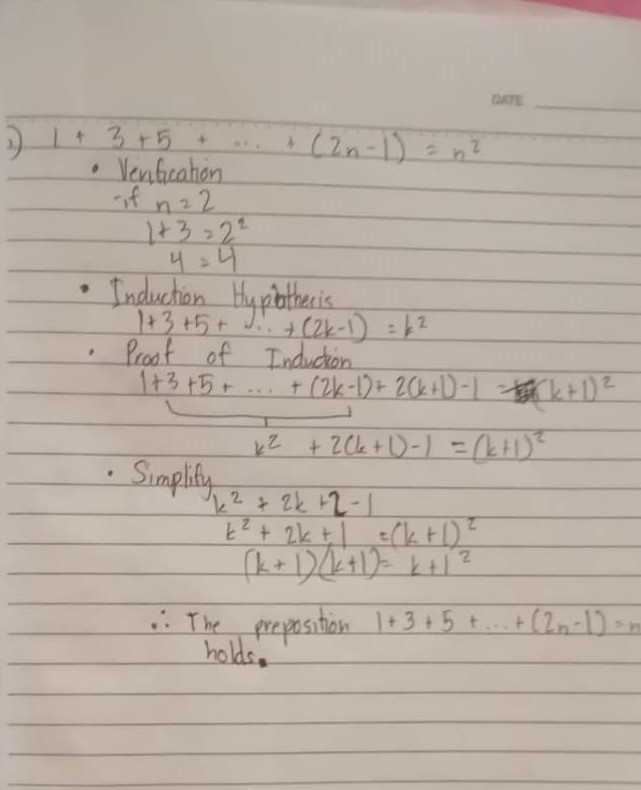 DATE
1 + 3 + 5 + ... + (2n-1) = n²
• Verification
-if n = 2
1+3 = 2²
4 = 4
• Induction Hypothesis
1+3+5+ ... + (2k-1) = k²
• Proof of Induction
1+3+5+ ... + (2k-1) + 2(k+1)-1 = (k+1)²
k² + 2(k+1)-1 = (k+1)²
• Simplify
k² + 2k + 2 - 1
k² + 2k + 1 = (k+1)²
(k+1)(k+1) = k+1²
∴ The preposition 1+3+5+...+(2n-1) = n
holds.